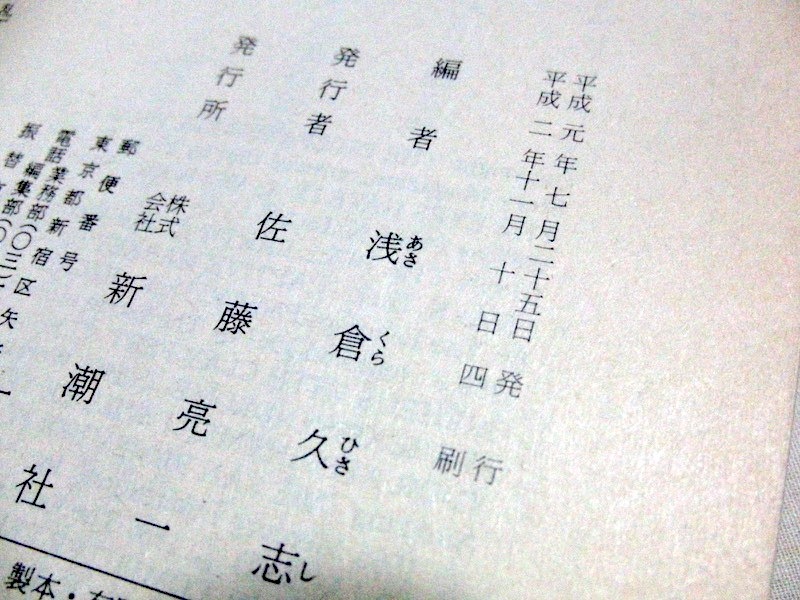 平成元年七月二十五日発行
平成二年十一月十日四刷
編者 浅倉久志
あさくらひさし
発行者 佐藤亮一
発行所 株式会社 新潮社
郵便番号
東京都新宿区矢
電話業務部(〇三)
編集部(〇
振替
製本・